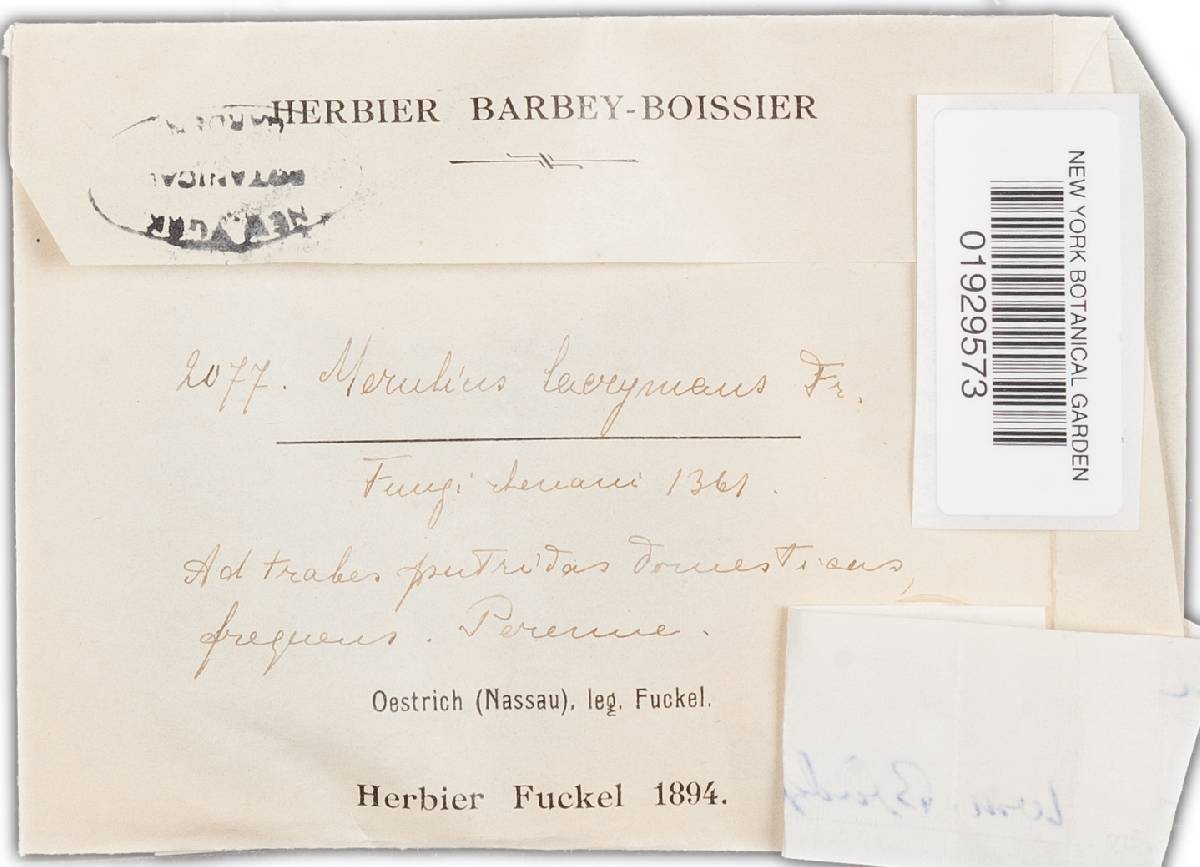 HERBIER BARBEY-BOISSIER
NEW YORK
BOTANICAL
GARDEN
NEW YORK BOTANICAL GARDEN
01929573
2077. Merulius lacrymans Fr.
Fungi rhenani 1361.
Ad trabes putridas domesticas,
frequens. Perenne.
Oestrich (Nassau), leg. Fuckel.
Herbier Fuckel 1894.